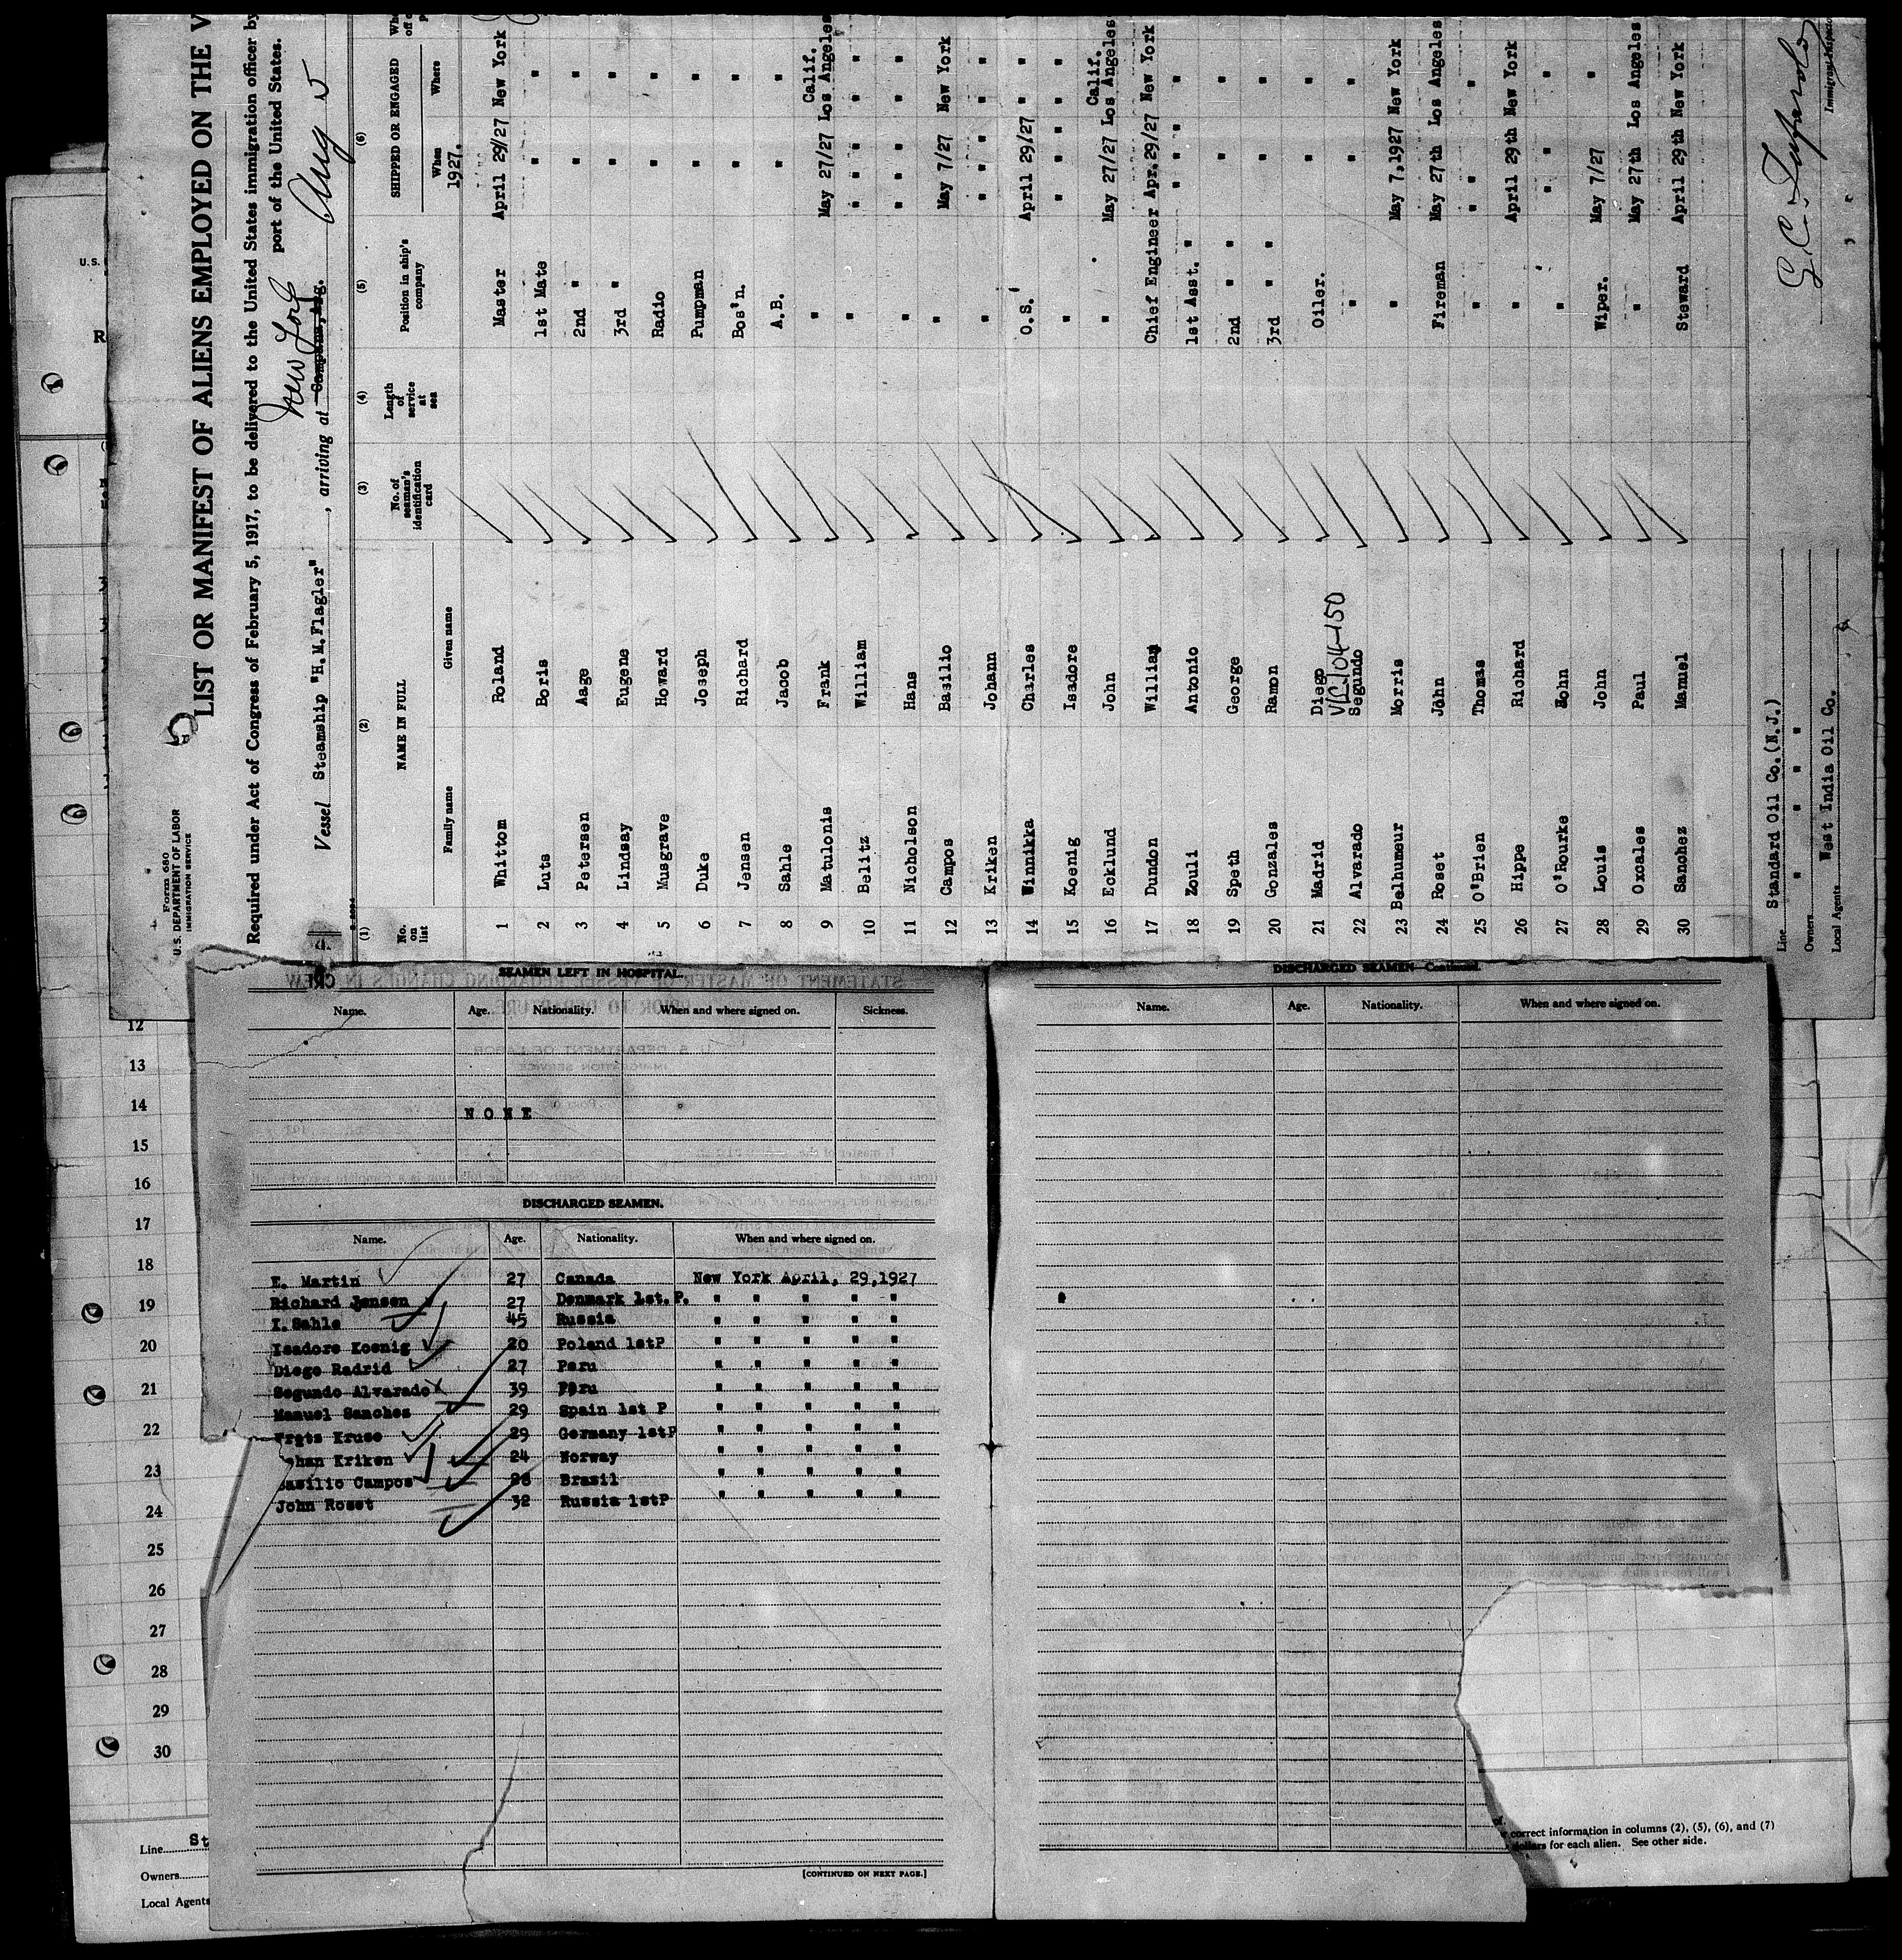 Form 680
U.S. DEPARTMENT OF LABOR
IMMIGRATION SERVICE
5
LIST OR MANIFEST OF ALIENS EMPLOYED ON THE V
Required under Act of Congress of February 5, 1917, to be delivered to the United States immigration officer by
port of the United States.
Vessel Steamship "H.M.Flagler", arriving at New York Aug
(1) (2) (3) (4) (5) (6)
No. on list NAME IN FULL No. of seaman's identification card Length of service at sea Position in ship's company SHIPPED OR ENGAGED
Family name Given name When Where
1927.
1 Whittom Roland Master April 29/27 New York
2 Luts Boris 1st Mate " "
3 Petersen Aage 2nd " " "
4 Lindsay Eugene 3rd " " "
5 Musgrave Howard Radio " "
6 Duke Joseph Pumpman " "
7 Jensen Richard Bos'n. " "
8 Sahle Jacob A.B. " "
Calif.
9 Matulonis Frank " May 27/27 Los Angeles
10 Belitz William " " " " " "
11 Nicholson Hans " " " " " "
12 Campos Basilio " May 7/27 New York
13 Kriken Johann " " " " " "
14 Winnikka Charles O.S. April 29/27 " "
15 Koenig Isadore " " " " "
Calif.
16 Ecklund John " May 27/27 Los Angeles
17 Dundon William Chief Engineer Apr.29/27 New York
18 Zouli Antonio 1st Asst. " " " " "
19 Speth George 2nd " " " "
20 Gonzales Ramon 3rd " " " "
21 Madrid Diego Oiler. " "
VL-104-150
22 Alvarado Segundo " " "
23 Belhumeur Morris " May 7,1927 New York
24 Roset John Fireman May 27th Los Angeles
25 O'Brien Thomas " " " "
26 Hippe Richard " April 29th New York
27 O'Rourke John " " " "
28 Louis John Wiper. May 7/27 "
29 Oxoales Paul " May 27th Los Angeles
30 Sanchez Manuel Steward April 29th New York
Line Standard Oil Co.(N.J.)
Owners " " " "
Local Agents West India Oil Co.
Immigrant Inspector
SEAMEN LEFT IN HOSPITAL.
Name. Age. Nationality. When and where signed on. Sickness.
N O N E
DISCHARGED SEAMEN.
Name. Age. Nationality. When and where signed on.
E. Martin 27 Canada New York April, 29,1927
Richard Jensen 27 Denmark 1st.P. " " " " "
I.Sahle 45 Russia " " " " "
Isadore Koenig 20 Poland 1stP " " " " "
Diego Radrid 27 Peru " " " " "
Segundo Alvarado 39 Peru " " " " "
Manuel Sanches 29 Spain 1st P " " " " "
Kruse 29 Germany 1stP " " " " "
ohan Kriken 24 Norway " " " " "
asilio Campos 28 Brasil " " " " "
John Roset 32 Russia 1stP " " " " "
[CONTINUED ON NEXT PAGE.]
DISCHARGED SEAMEN—Continued.
Name. Age. Nationality. When and where signed on.
12
13
14
15
16
17
18
19
20
21
22
23
24
25
26
27
28
29
30
Line St
Owners
Local Agents
correct information in columns (2), (5), (6), and (7)
dollars for each alien. See other side.